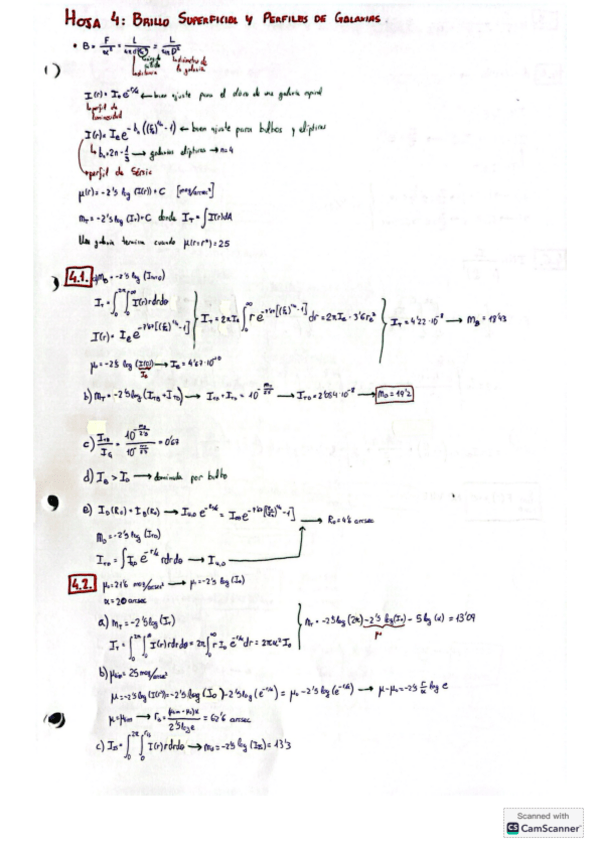 HOJA 4: BRILLO SUPERFICIAL Y PERFILES DE GALAXIAS
• B = F/α² = L/4πd²α² = L/4πD²
distancia
diámetro de la galaxia
I(r) = I₀e^(-r/α) ← buen ajuste para el disco de una galaxia espiral
perfil de luminosidad
I(r) = I_e e^(-b_n((r/r_e)^(1/n) - 1)) ← buen ajuste para bulbos y elípticas
b_n = 2n - 1/3 → galaxias elípticas → n=4
perfil de Sérsic
μ(r) = -2'5 log (I(r)) + C [mag/arcsec²]
m_T = -2'5 log (I_T) + C donde I_T = ∫I(r)dA
Una galaxia termina cuando μ(r=r*) = 25
4.1. a) m_B = -2'5 log (I_TOT,B)
I_T = ∫₀^2π ∫₀^∞ I(r) r dr dθ
I(r) = I_e e^(-7'67[(r/r_e)^(1/4) - 1])
I_T = 2πI_e ∫₀^∞ r e^(-7'67[(r/r_e)^(1/4) - 1]) dr = 2πI_e · 3'6 r_e²
I_T = 4'22·10⁻⁸ → m_B = 18'43
b) m_T = -2'5 log (I_TB + I_TD) → I_TB + I_TD = 10^(-m_T/2'5) → I_TD = 2'084·10⁻⁸ → m_D = 19'2
c) I_TB/I_G = 10^(-m_B/2'5)/10^(-m_T/2'5) = 0'67
d) I_B > I_D → dominada por bulbo
e) I_D(R₀) = I_B(R₀) →
→ R₀ = 4'6 arcsec
m_D = -2'5 log (I_TD)
I_TD = ∫ I₀,D e^(-r/α) r dr dθ → I₀,D
4.2. μ₀ = 21'6 mag/arcsec² → μ = -2'5 log (I₀)
α = 20 arcsec
a) m_T = -2'5 log (I_T)
I_T = ∫₀^2π ∫₀^∞ I(r) r dr dθ = 2π ∫₀^∞ r I₀ e^(-r/α) dr = 2πα² I₀
m_T = -2'5 log (2π) - 2'5 log (I₀) - 5 log (α) = 13'09
μ
b) μ_lim = 25 mag/arcsec²
μ = -2'5 log (I(r)) = -2'5 log (I₀) - 2'5 log (e^(-r/α)) = μ₀ - 2'5 log (e^(-r/α)) →
μ = μ_lim → r₀ = (μ_lim - μ₀)α / 2'5 log e = 62'6 arcsec
c) I₂₅ = ∫₀^2π ∫₀^r₀ I(r) r dr dθ → m₂₅ = -2'5 log (I₂₅) = 13'3
Scanned with
CS CamScanner